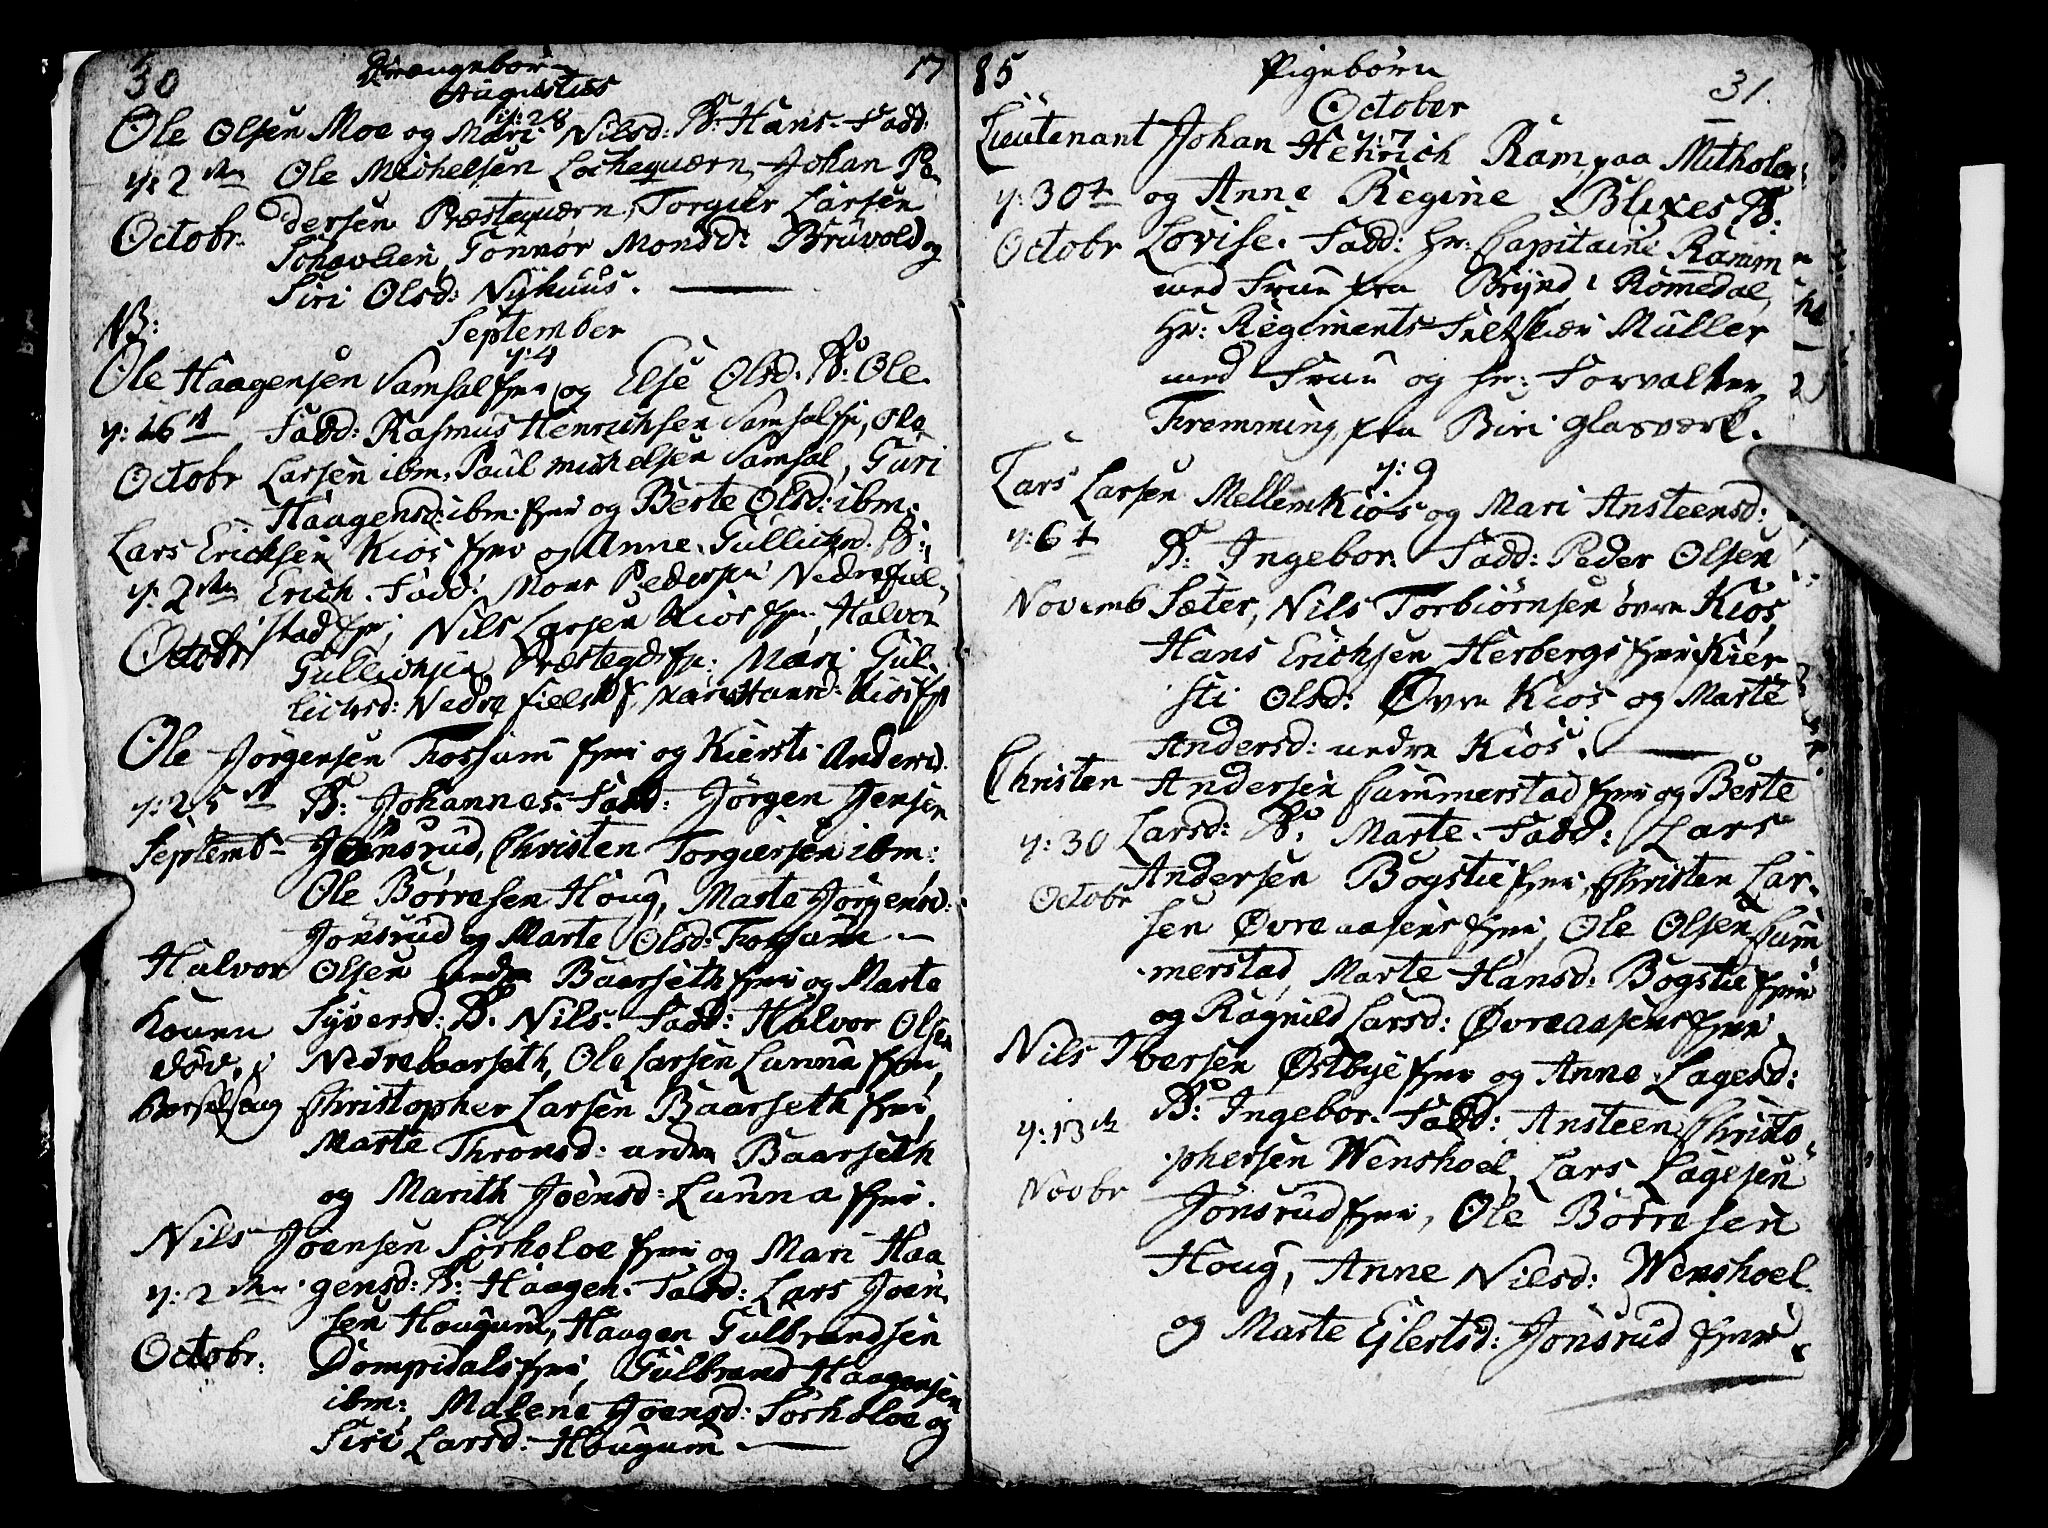 30 Drængebørn 17
Augustus
y: 28
Ole Olsen Moe og Mari Nilsd: B: Hans. Fadd:
y: 2den Ole Michelsen Lochequærn, Johan Pe-
Octobr. dersen Præstequærn, Torgier Larsen
Schavlien, Gonnor Monsd: Bruvold og
Siri Olsd: Nyhuus.
NB: September
y: 4
Ole Haagensen Samsal fier og Else Olsd. B: Ole
y: 16de Fadd: Rasmus Henrichsen Samsal fi, Ole
Octobr Larsen ibm. Paul Michelsen Samsal, Guri
Haagensd: ibm. fier og Berte Olsd: ibm.
Lars Erichsen Kios fier og Anne Gullichsd. B:
y: 2den Erich. Fadd: Mons Pedersen Nedrefiel-
Octobr stad fi, Nils Larsen Kios fier, Halvor
Gullichsen Præstegd fi: Mari Gul-
lichsd: Nedre fielst f Hansd: Kios fi
Ole Jörgensen Fossum fier og Kiersti Andersd.
y: 25de B: Johannes. Fadd: Jörgen Jensen
Septemb- Jönsrud, Christen Torgiersen ibm:
Ole Börresen Houg, Marte Jörgensd:
Jönsrud og Marte Olsd: Fossum
Halvor Olsen nedre Baarseth fier og Marte
Syversd: B. Nils. Fadd: Halvor Olsen
döv, i Nedrebaarseth, Ole Larsen Lunna fier,
Christopher Larsen Baarseth fier,
Marte Thronsd: nedre Baarseth
og Marith Joensd: Lunna fier.
Nils Joensen Sörholoe fier og Mari Haa
y: 2den gensd: B: Haagen. Fadd: Lars Joen-
sen Hougum, Haagen Gulbrandsen
Octobr. Dompidals fier, Gulbrand Haagensen
ibm:, Malene Joensd: Sörholoe og
Siri Larsd: Hougum
85 Pigebörn 31.
October
y: 7
Lieutenant Johan Henrich Ram, paa Mitholoe
y: 30te og Anne Regine Blixes B:
Octobr Lovise. Fadd: Hr: Capitaine Ramm
med Frue fra Brynd i Romedal,
Hr: Regiments Feltskiær Müller
med Frue og Hr: Forvalter
Fremming fra Biri Glasværk.
y: 9
Lars Larsen Mellem Kios og Mari Ansteensd:
y: 6te B: Ingebor. Fadd: Peder Olsen
Novemb Sæter, Nils Torbiörnsen övre Kios,
Hans Erichsen Herbergs fier Kier
sti Olsd: Övre Kios og Marte
Andersd: nedre Kios.
Christen Andersen Summerstad fier og Berte
y: 30 Larsd: B: Marte. Fadd: Lars
Octobr Andersen Bogstie fier, Christen Lar-
sen Övreaasens fier, Ole Olsen Sum
merstad, Marte Hansd: Bogstie fier
og Ragnild Larsd: Övreaasens fier.
Nils Iversen Östbye fier og Anne Lagesd:
y: 13de B: Ingebor. Fadd: Ansteen Christo
phersen Wenshoel, Lars Lagesen
Novbr Jönsrud fier, Ole Börresen
Houg, Anne Nilsd: Wenshoel
og Marte Ejlertsd: Jönsrud fier